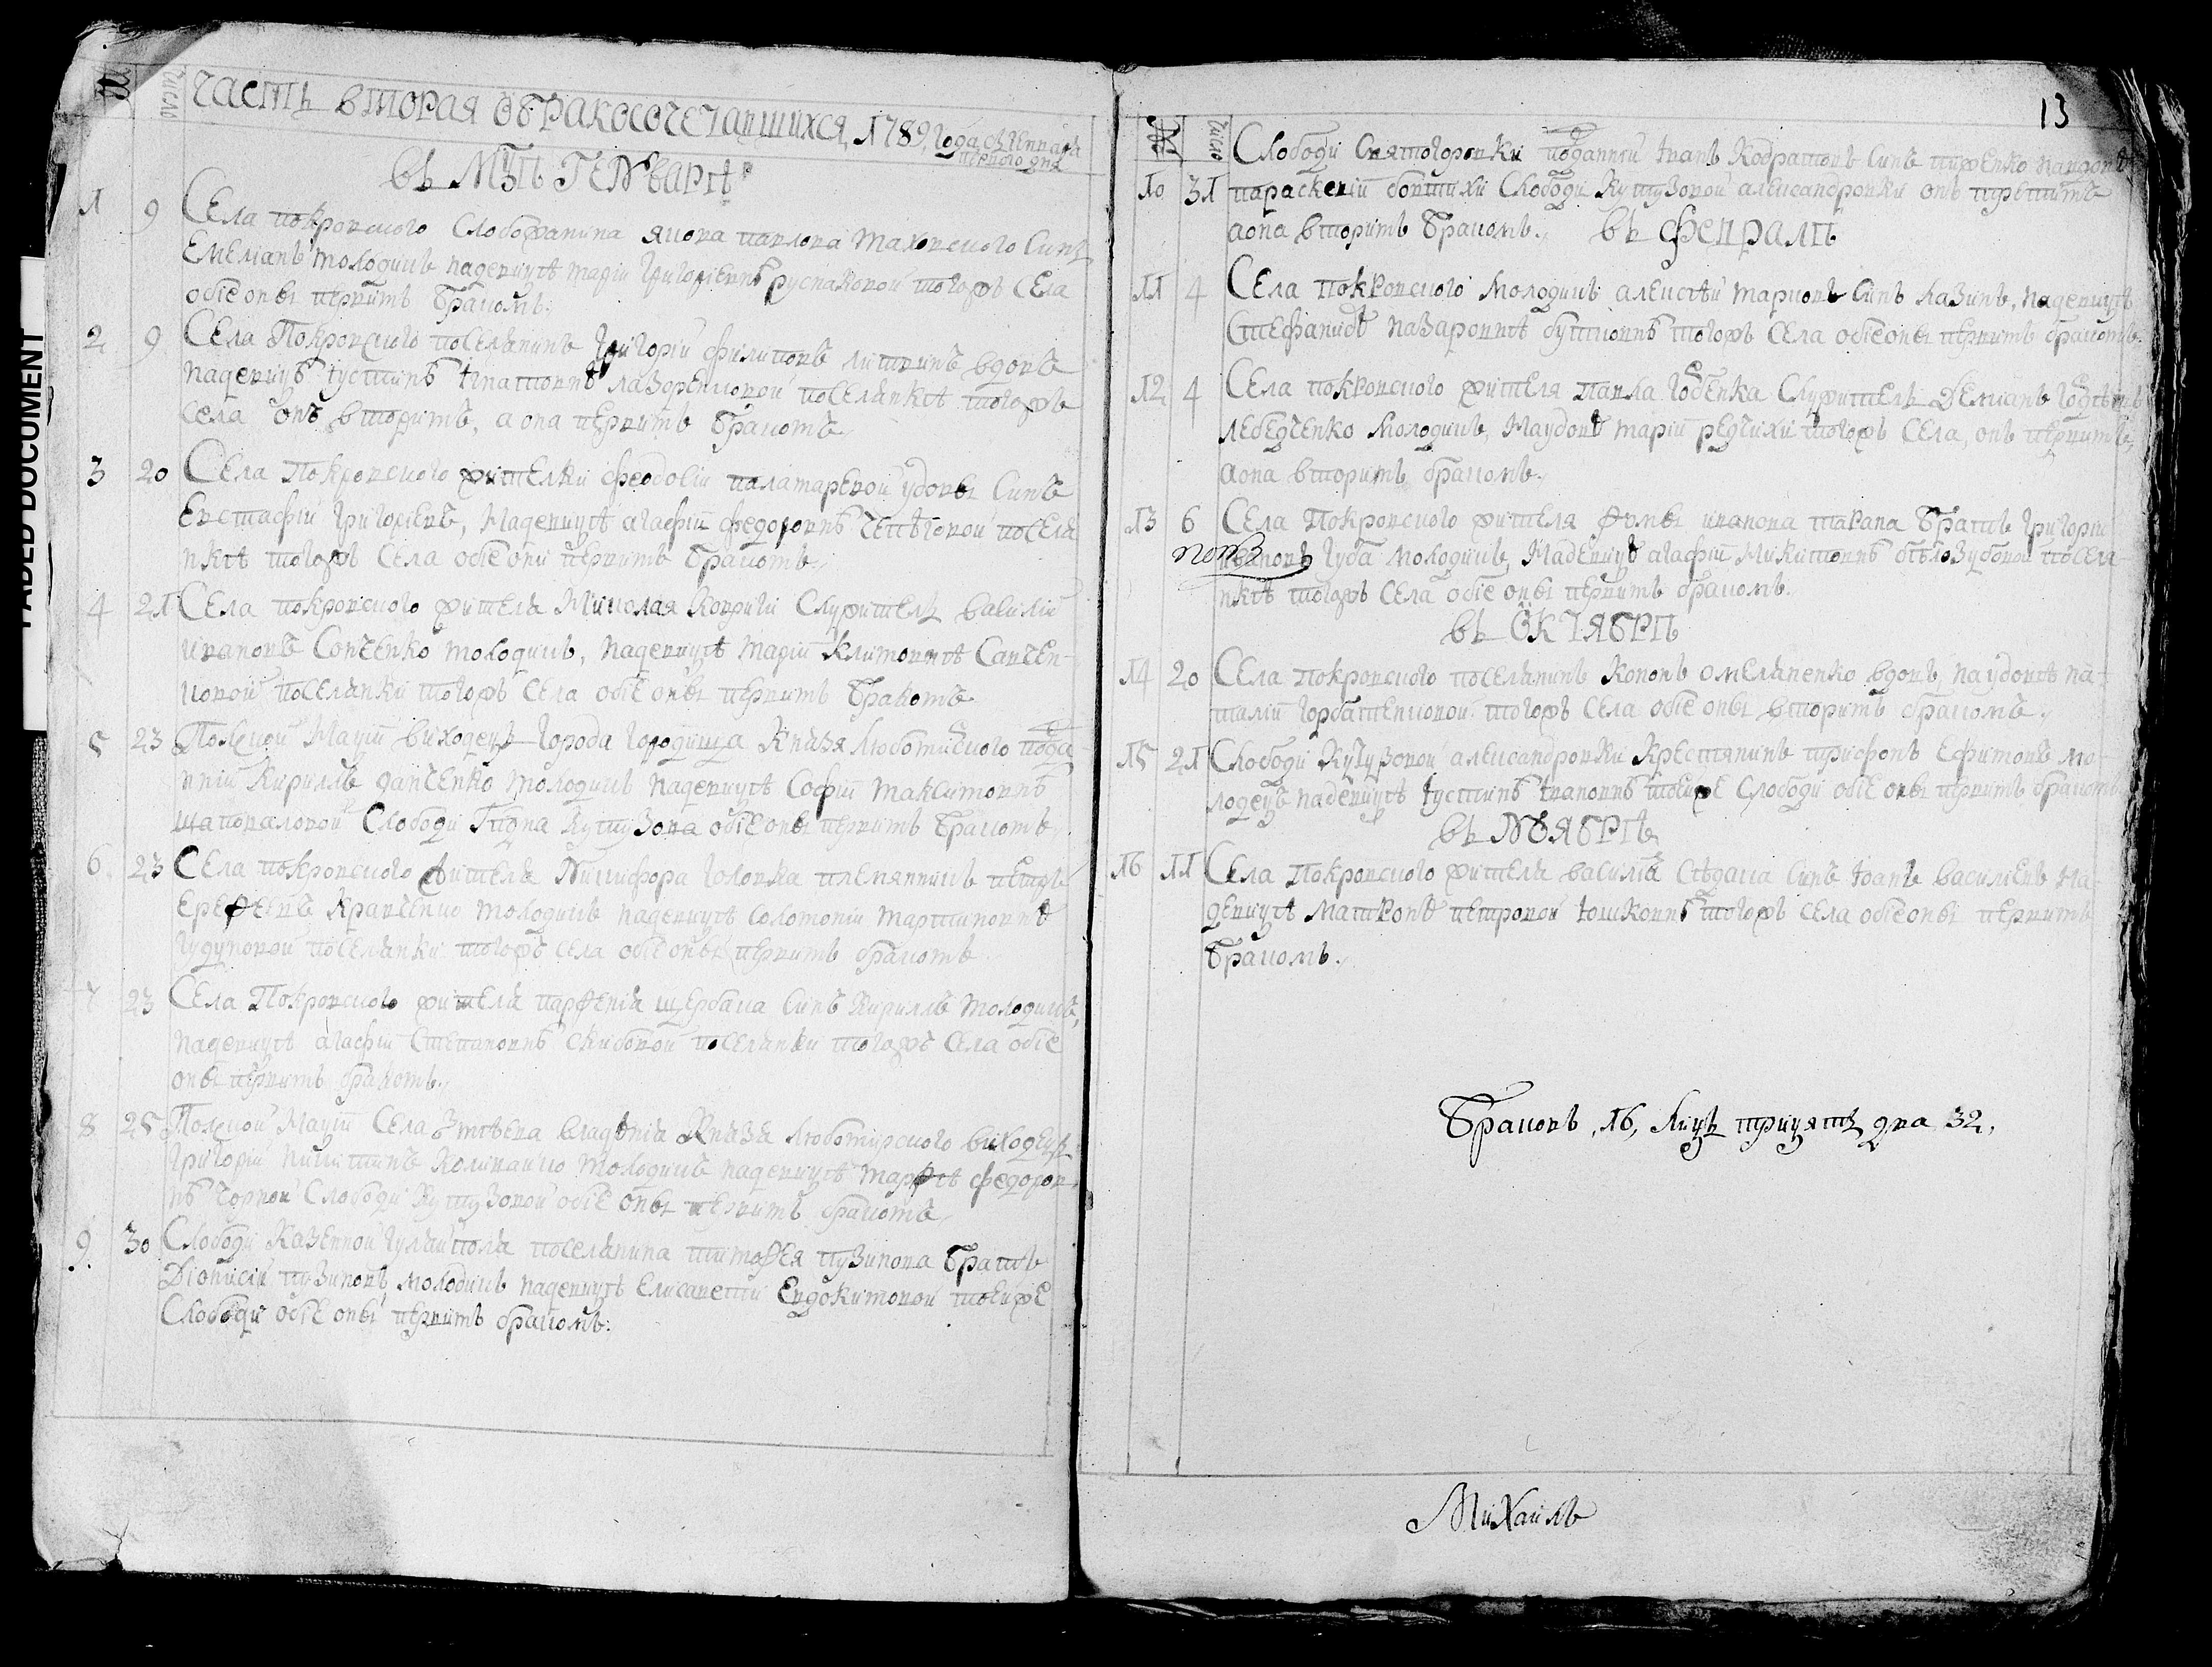 FADED DOCUMENT
№ Число Часть вторая ѡ бракосочетавшихся, 1789, года сѣенваря
первого дня
въ Мцѣ Генъварѣ
1 9 Села покровского слобожанина Якова Павлова Маховского синъ
Емелианъ молодикъ надевицѣ Марiи Григорiевнѣ Руснаковой тогожъ села
обiе оны первимъ бракомъ.
2 9 Села Покровского поселянинъ Григорiй Филиповъ вдовъ
надевицѣ Iустинѣ Iгнатовнѣ Лазоренковой поселянкѣ тогожъ
села онъ вторимъ, а она первимъ бракомъ
3 20 Села Покровского жителки Феодосiи Паламаревой удовы синъ
Евстафiй Григориевъ, надевицѣ Агафiи Федоровнѣ поселя
нкѣ тогожъ села обiе они первимъ бракомъ
4 21 Села покровского жителя Николая Ковриги служитель Василiй
Ивановъ Сопченко молодикъ, надевицѣ Марiи Климовнѣ Савчен-
ковой поселянки тогожъ села обiе оны первимъ бракомъ
5 23 Полской Нацiи виходецъ города Городища Князя Любомирского подда-
ннiй Кирилъ Данченко молодикъ надевицѣ Софiи Максимовнѣ
Шаповаловой Слободи Гпдна Кутузова обiе оны первимъ бракомъ
6 23 Села покровского жителя Никифора Головка племянникъ Петръ
Кравченко молодикъ надевицѣ Соломонiи Мартиновнѣ
Гудуновой поселянки тогожъ села обiе оны первимъ бракомъ
7 23 Села Покровского жителя Парфенiя Щербака синъ Кирилъ молодикъ,
надевицѣ Агафiи Степановнѣ Скибовой поселянки тогожъ села обiе
оны первимъ бракомъ.
8 25 Полской Нацiи села владѣнiя Князя Любомирского виходецъ
Григорiй молодикъ надевицѣ Марфѣ Федоров
нѣ Чорной Слободи Кутузовой обiе оны первимъ бракомъ
9. 30 Слободи казенной Гуляйполя поселянина Тимофея Пузикова братъ
Дiонисiй Пузиковъ молодикъ надевицѣ Елисавети Евдокимовой тоейже
Слободи обiе оны первимъ бракомъ.
13
№ Число Слободи Святогоровки подданнiй Iванъ Кодратовъ синъ навдовѣ
10 31 Параскевiи Слободи Кутузовой Александровки онъ третимъ
аона вторимъ бракомъ. въ Февралѣ
11 4 Села Покровского молодикъ Алексѣй Марковъ синъ надевицѣ
Стефанидѣ Назаровнѣ тогожъ села обiе оны первимъ бракомъ.
12 4 Села покровского жителя Павла служитель Демианъ
Лебедченко молодикъ, наудовѣ Марiи тогожъ села, онъ первимъ,
аона вторимъ бракомъ.
13 6 Села Покровского жителя Фомы Иванова братъ Григорiй
Ивановъ Губа молодикъ, надевицѣ Агафiи Микитовнѣ Бѣлозубовой посел-
нкѣ тогожъ села обiе оны первимъ бракомъ.
въ Октябрѣ
14 20 Села Покровского поселянинъ Кононъ Омеляненко вдовъ наудовѣ На-
талiи Горбатенковой тогожъ села обiе оны вторимъ бракомъ.
15 21 Слободи Кутузовой Александровки крестянинъ Трифонъ Ефимовъ мо-
лодецъ надевицѣ Iустинѣ Iвановнѣ тоейже слободи обiе оны первимъ бракомъ
въ Ноябрѣ
16 11 Села Покровского жителя Василiя синъ Iоанъ Василiевъ на-
девицѣ Матронѣ Петровой тогожъ села обiе оны первимъ
бракомъ.
Браковъ, 16, лицъ трицять два 32,
Михаилъ